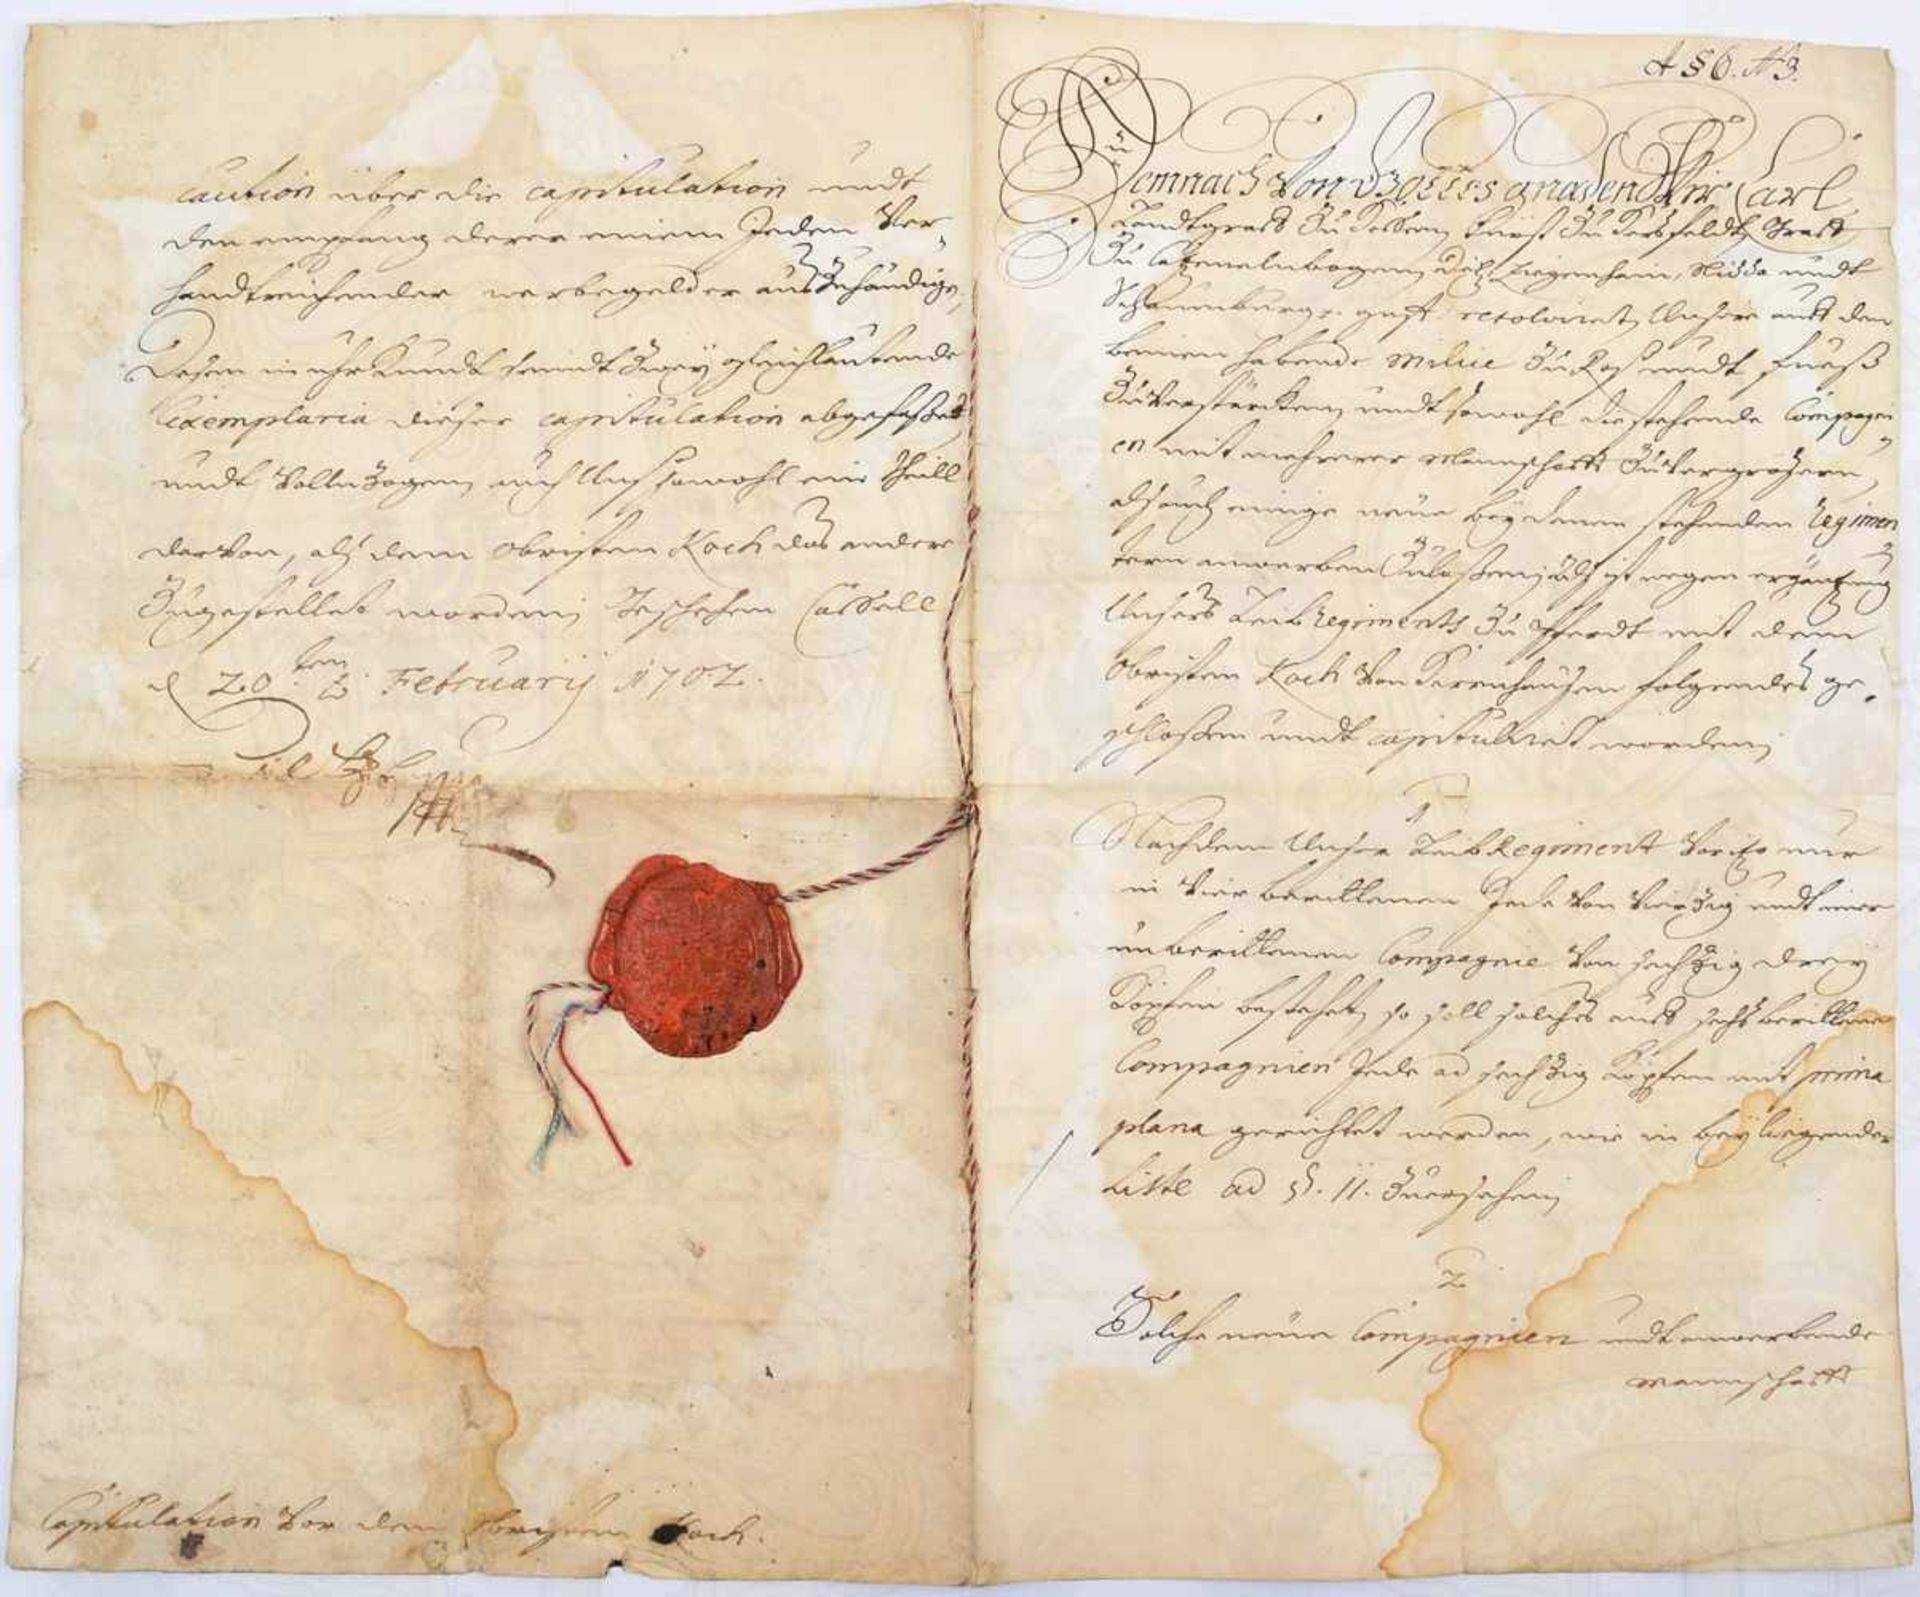 caution über die capitulation undt
den empfang derer einem Jeden Ver-
handtreichender werbegelder außzuhändigen,
Dessen in uhrkundt seindt zwey gleichlautende
Exemplaria dießer capitulation abgefaßet
undt Vollenzogen, auch Unß sowohl ein Theill
darvon, alß dem Obristen Koch das andere
Zugestellet worden; Geschehen Cassell
d 20ten Februarij 1702.
Capitulation Vor den Obristen Koch.
A §6. N3.
Demnach Von Gottes gnaden Wir Carl
Landtgraff Zu Hessen, Fürst Zu Herßfeldt, Graff
Zu Catzenelnbogen, Dietz, Ziegenhain, Nidda undt
Schaumburg p. gnst. resolviret, Unßere auff den
beinen habende Milice Zu Roß undt Fueß
Zuverstärcken, undt sowohl die stehende Compagni-
en mit mehrerer Mannschafft Zuvergrößern,
alß auch einige neue bey denen stehenden Regimen
tern anwerben Zulaßen; Alß ist wegen ergäntzung
Unßers Leib Regiments Zu Pferdt mit dem
Obristen Koch Von folgendes ge-
schloßen undt capituliret worden;
1
Nachdem Unßer Leib Regiment Voritzo nur
in Vier berittenen Jede Von Vierzig undt einer
unberittenen Compagnie Von sechzig drey
Köpfen bestehet, so soll solches auff sechs berittene
Compagnien Jede ad sechzig Köpfen mit prima
plana gerichtet werden, wie in beyliegender
Liste ad §. 11. Zuersehen;
2
Solche neue Compagnien undt anwerbende
Mannschafft